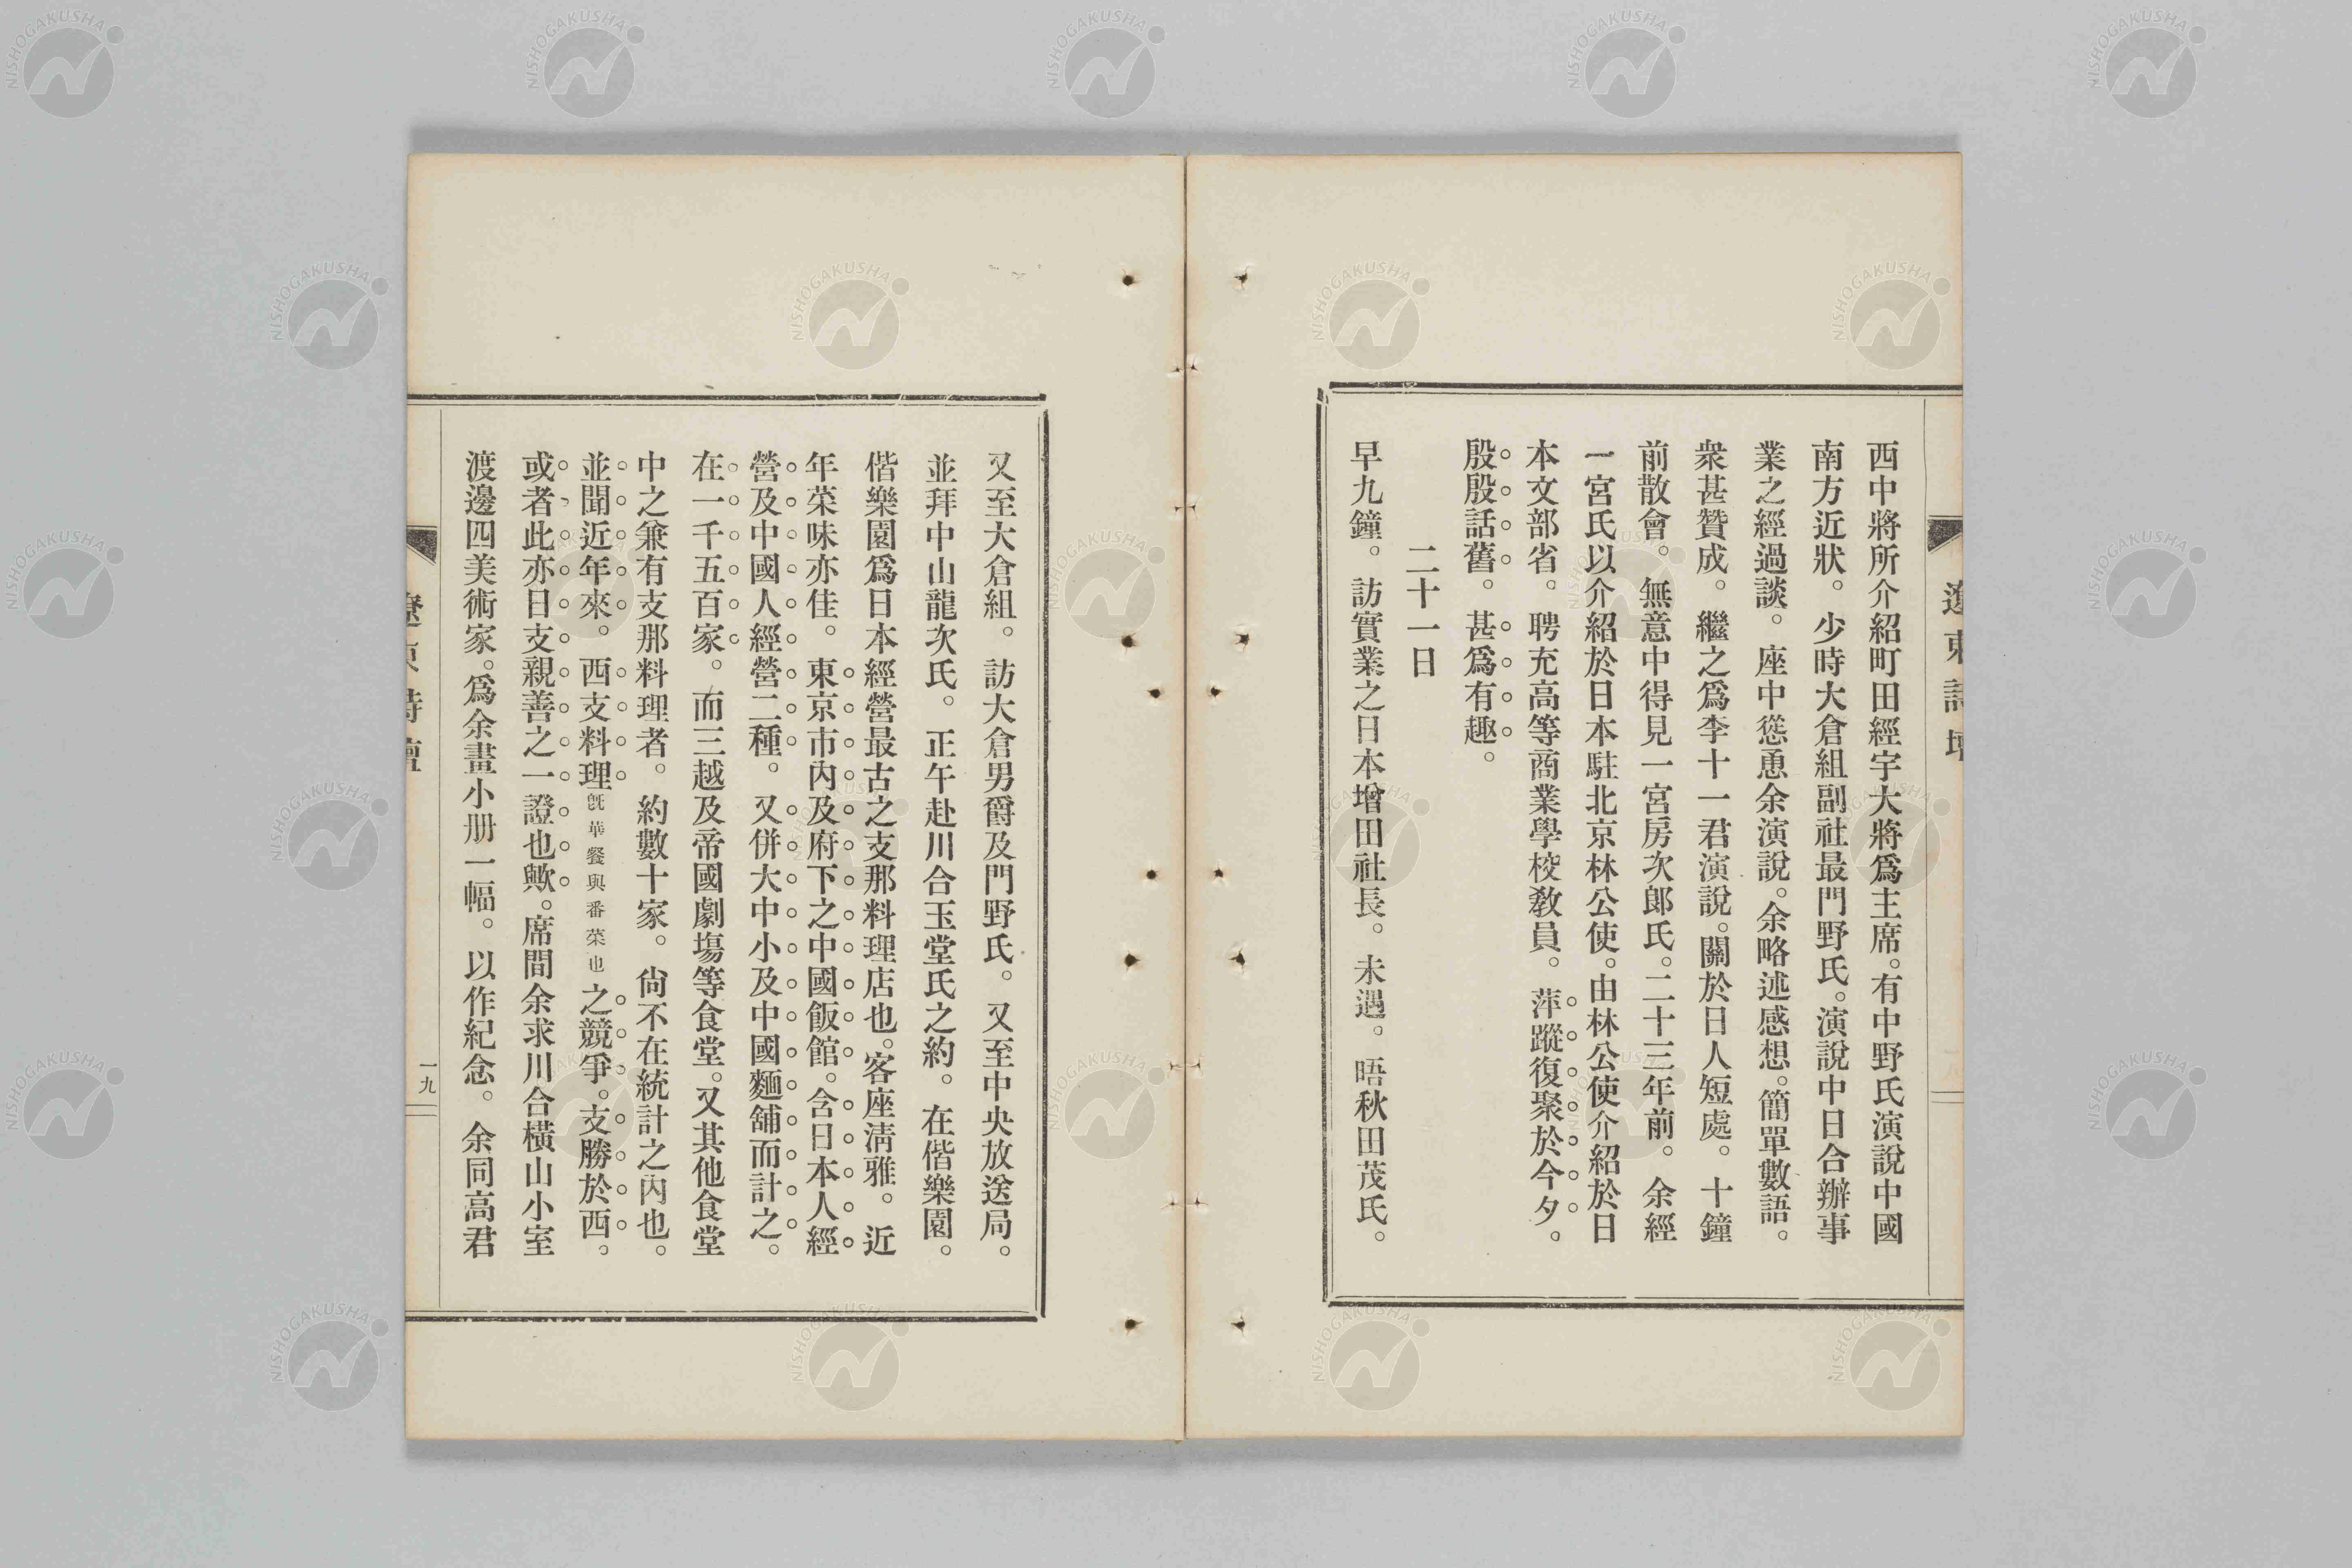 西中將所介紹町田經宇大將爲主席。有中野氏演說中國
南方近狀。少時大倉組副社最門野氏。演說中日合辦事
業之經過談。座中慫恿余演說。余略述感想。簡單數語。
衆甚贊成。繼之爲李十一君演說。關於日人短處。十鐘
前散會。無意中得見一宮房次郎氏。二十三年前。余經
一宮氏以介紹於日本駐北京林公使。由林公使介紹於日
本文部省。聘充高等商業學校教員。萍蹤復聚於今夕。
殷殷話舊。甚爲有趣。
二十一日
早九鐘。訪實業之日本增田社長。未遇。晤秋田茂氏。
又至大倉組。訪大倉男爵及門野氏。又至中央放送局。
並拜中山龍次氏。正午赴川合玉堂氏之約。在偕樂園。
偕樂園爲日本經營最古之支那料理店也。客座淸雅。近
年菜味亦佳。東京市內及府下之中國飯館。含日本人經
營及中國人經營二種。又併大中小及中國麵舖而計之。
在一千五百家。而三越及帝國劇塲等食堂。又其他食堂
中之兼有支那料理者。約數十家。尙不在統計之內也。
並聞近年來。西支料理旣華餐與番菜也之競爭。支勝於西。
或者此亦日支親善之一證也歟。席間余求川合橫山小室
渡邊四美術家。爲余畫小册一幅。以作紀念。余同高君
一九
NISHOGAKUSHA